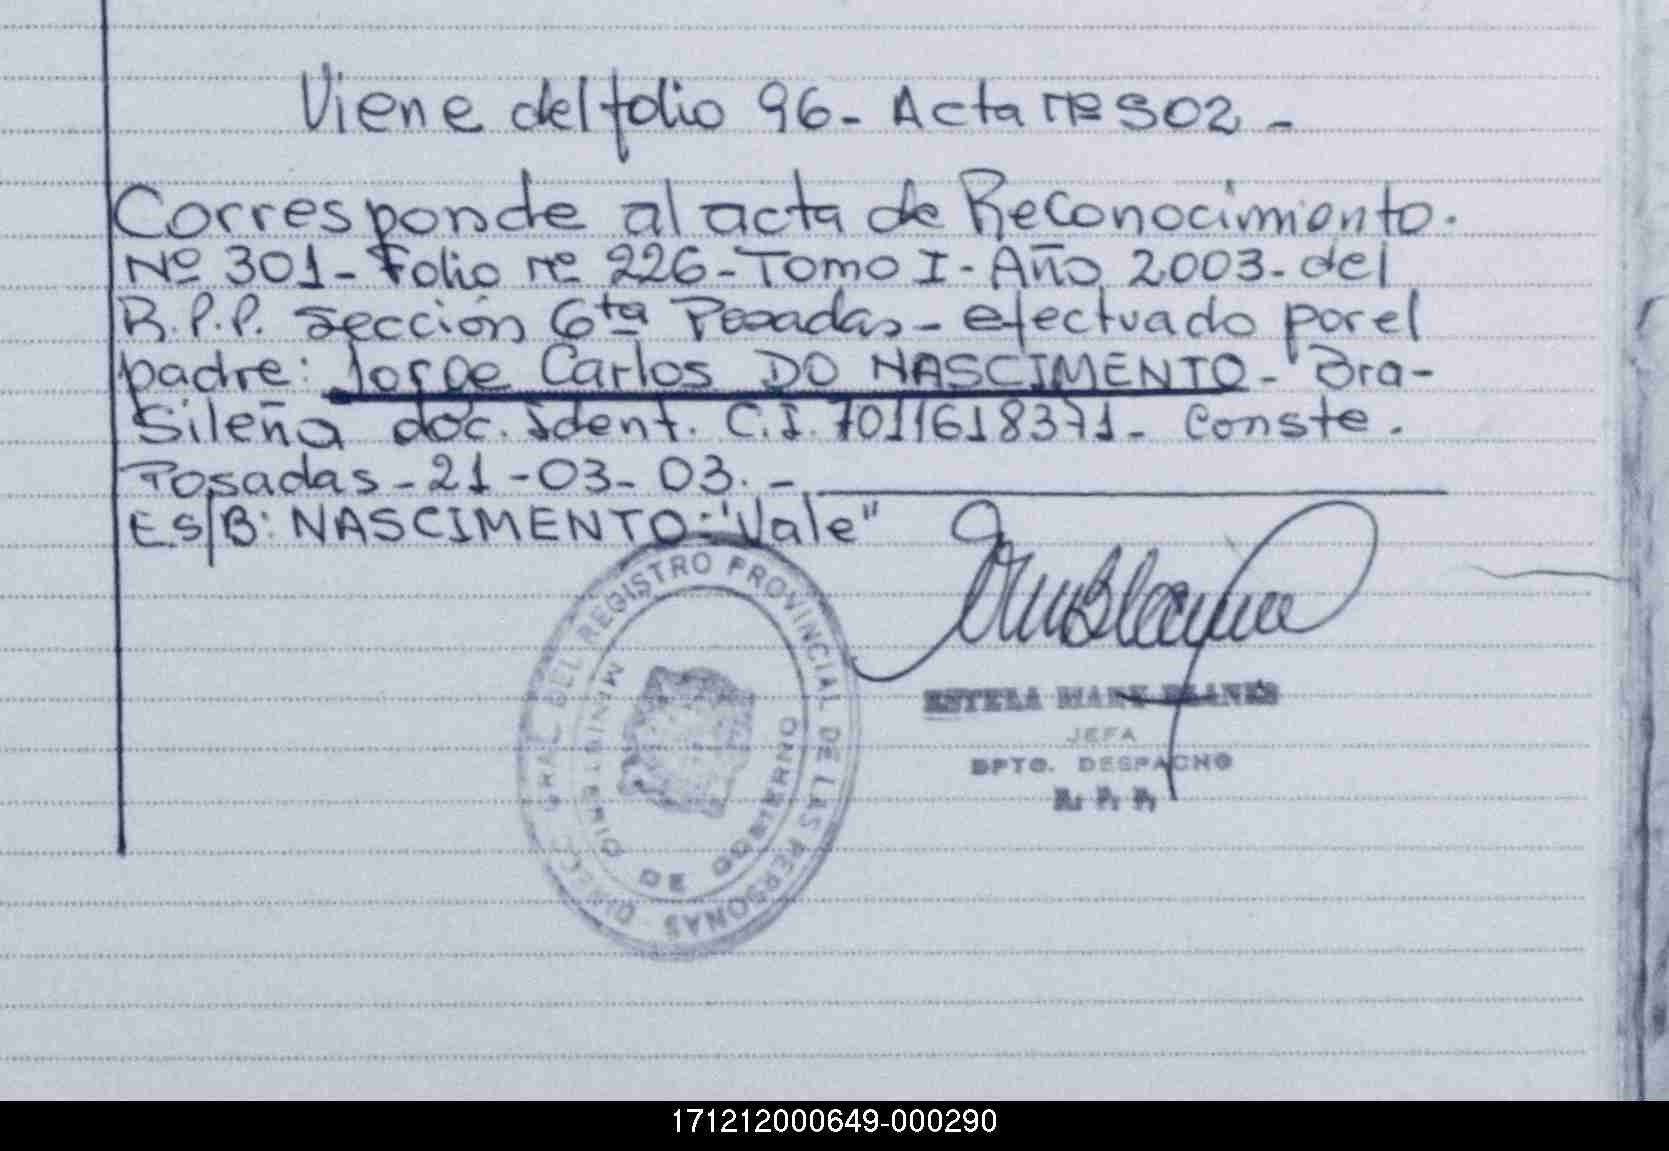 Viene del folio 96- Acta nº 502-
Corresponde al acta de Reconocimiento.
Nº 301- Folio nº 226- Tomo I- Año 2003- del
R.P.P. Sección 6ta Posadas- efectuado por el
padre: Jorge Carlos DO NASCIMENTO- Bra-
sileña doc. Ident. C.I. 7011618371- Conste.
Posadas-21-03-03.-
ES/B: NASCIMENTO: "Vale"
DIRECC. GRAL. DEL REGISTRO PROVINCIAL DE LAS PERSONAS
MINISTERIO DE GOBIERNO
ESTELA BLANES
JEFA
DPTO. DESPACHO
R. P. P.
171212000649-000290